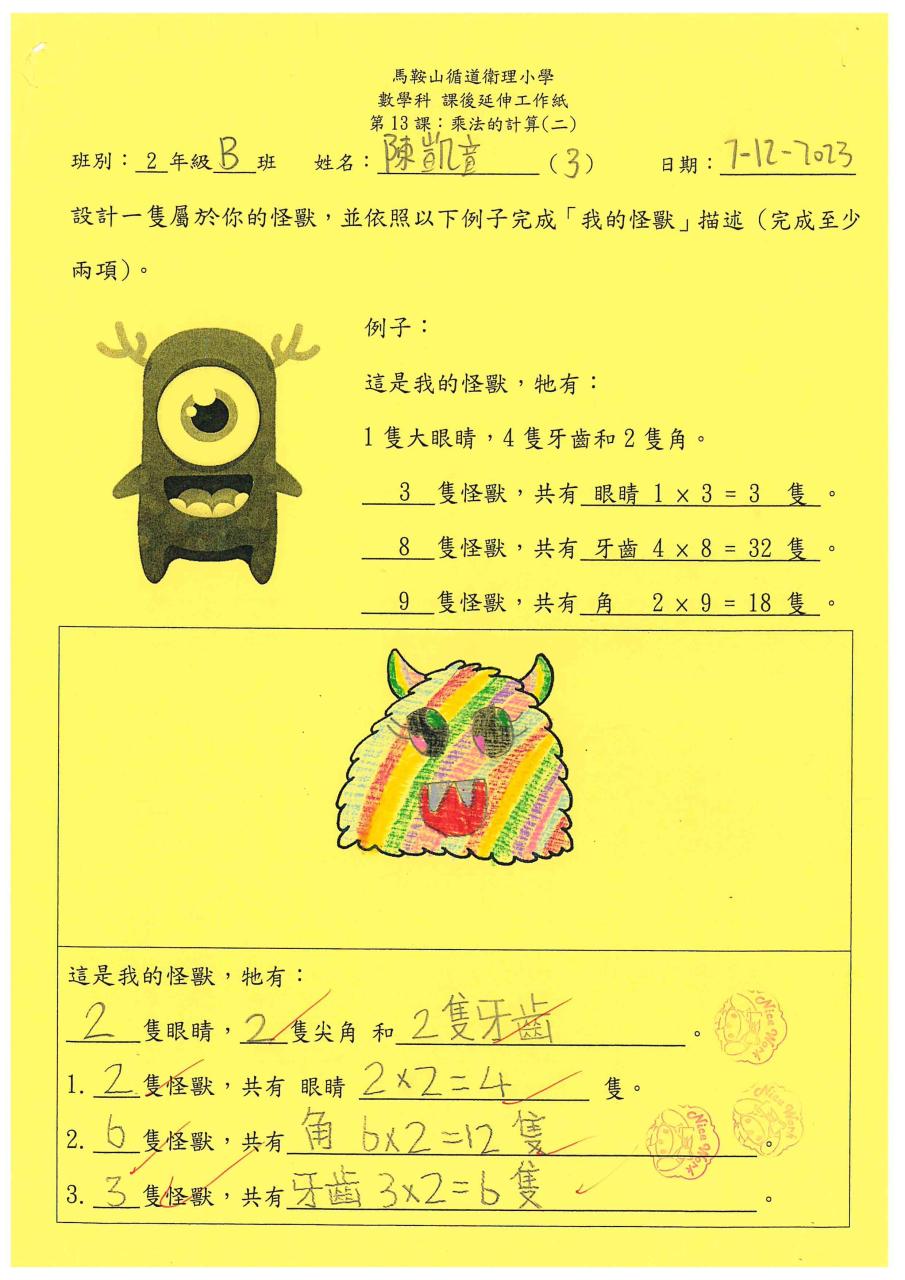 馬鞍山循道衛理小學
數學科 課後延伸工作紙
第13課：乘法的計算(二)
班別：2年級B班 姓名：陳凱音(3) 日期：7-12-2023
設計一隻屬於你的怪獸，並依照以下例子完成「我的怪獸」描述（完成至少
兩項）。
例子：
這是我的怪獸，牠有：
1隻大眼睛，4隻牙齒和2隻角。
3 隻怪獸，共有 眼睛 1 × 3 = 3 隻 。
8 隻怪獸，共有 牙齒 4 × 8 = 32 隻 。
9 隻怪獸，共有 角 2 × 9 = 18 隻 。
這是我的怪獸，牠有：
2 隻眼睛，2 隻尖角 和 2隻牙齒 。
1. 2 隻怪獸，共有 眼睛 2×2=4 隻。
2. 6 隻怪獸，共有 角 6×2=12 隻 。
3. 3 隻怪獸，共有 牙齒 3×2=6 隻 。
Nice Work
Nice Work
Nice Work